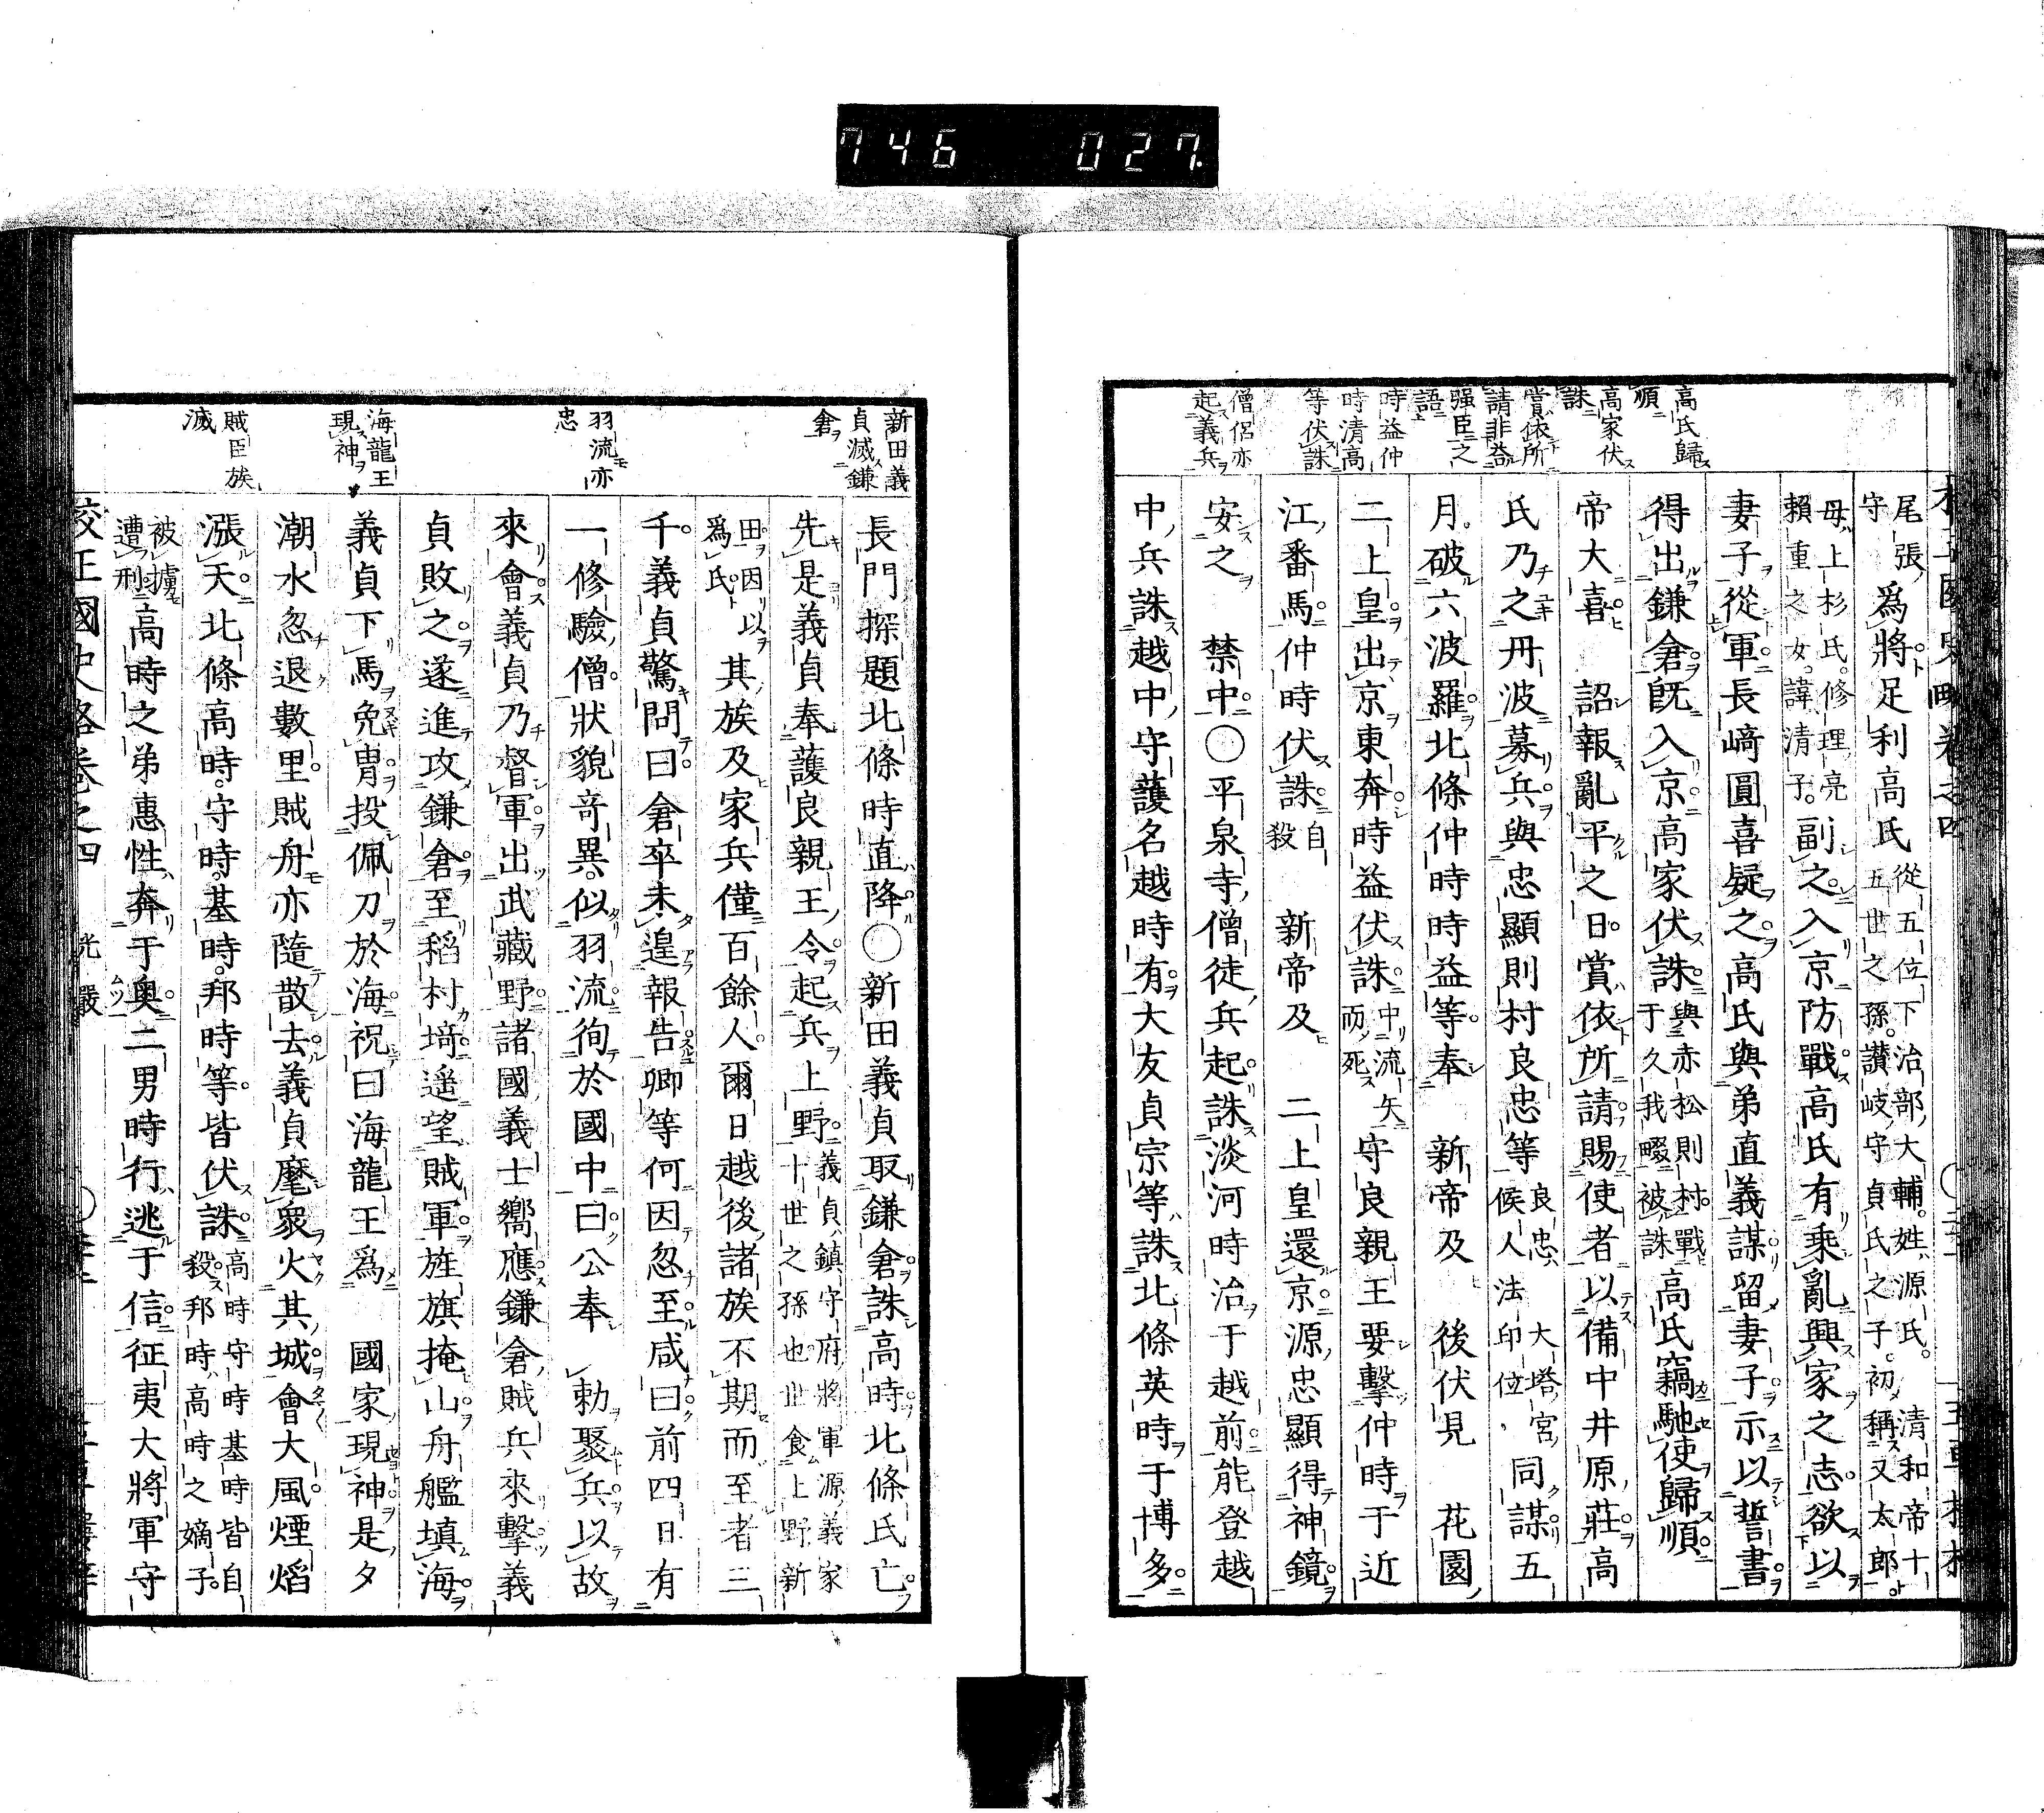 746 027
高氏歸
順
高家伏
誅
賞依所
請非益
强臣之
語
時益仲
時清高
等伏誅
僧侶亦
起義兵
尾張守爲將足利高氏從五位下治部大輔姓源氏清和帝十五世之孫讃岐守貞氏之子初稱又太郎
母上杉氏修理亮賴重之女諱清子副之入京防戰高氏有乘亂興家之志欲以
妻子從軍長﨑圓喜疑之高氏與弟直義謀留妻子示以誓書
得出鎌倉既入京高家伏誅與赤松則村戰于久我畷被誅高氏竊馳使歸順
帝大喜　詔報亂平之日賞依所請賜使者以備中井原莊高
氏乃之丹波募兵與忠顯則村良忠等良忠候人法印位大塔宮同謀五
月破六波羅北條仲時時益等奉　新帝及　後伏見　花園
二上皇出京東奔時益伏誅中流矢而死守良親王要擊仲時于近
江番馬仲時伏誅自殺　新帝及　二上皇還京源忠顯得神鏡
安之　禁中〇平泉寺僧徒兵起誅淡河時治于越前能登越
中兵誅越中守護名越時有大友貞宗等誅北條英時于博多
新田義
貞滅鎌
倉
羽流亦
忠
海龍王
現神
賊臣族
滅
長門探題北條時直降〇新田義貞取鎌倉誅高時北條氏亡
先是義貞奉護良親王令起兵上野義貞鎮守府將軍源義家十世之孫也世食上野新
田因以爲氏其族及家兵僅百餘人爾日越後諸族不期而至者三
千義貞驚問曰倉卒未遑報告卿等何因忽至咸曰前四日有
一修驗僧狀貌奇異似羽流徇於國中曰公奉　勅聚兵以故
來會義貞乃督軍出武藏野諸國義士嚮應鎌倉賊兵來擊義
貞敗之遂進攻鎌倉至稻村﨑遥望賊軍旌旗掩山舟艦填海
義貞下馬免冑投佩刀於海祝曰海龍王爲　國家現神是夕
潮水忽退數里賊舟亦隨散去義貞麾衆火其城會大風煙焰
漲天北條高時守時基時邦時等皆伏誅高時守時基時皆自殺邦時高時之嫡子
被擄遭刑高時之弟惠性奔于奧二男時行逃于信征夷大將軍守
校正國史略卷之四　光嚴